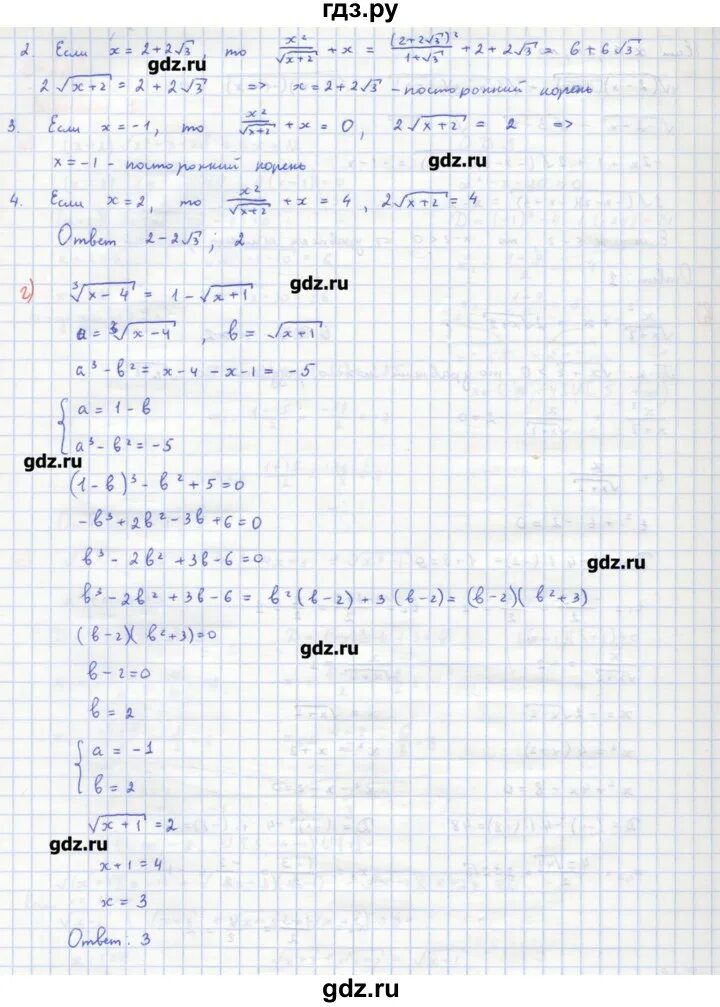 гдз.ру
2. Если x = 2+2√3, то x²/√(x+2) + x = (2+2√3)²/(1+√3) + 2+2√3 = 6+6√3
gdz.ru
2√(x+2) = 2+2√3 => x = 2+2√3 - посторонний корень
3. Если x = -1, то x²/√(x+2) + x = 0, 2√(x+2) = 2 =>
x = -1 - посторонний корень
gdz.ru
4. Если x = 2, то x²/√(x+2) + x = 4, 2√(x+2) = 4
Ответ 2-2√3; 2
gdz.ru
г) ∛(x-4) = 1 - √(x+1)
a = ∛(x-4), b = √(x+1)
a³ - b² = x - 4 - x - 1 = -5
{ a = 1 - b
a³ - b² = -5
gdz.ru
(1-b)³ - b² + 5 = 0
-b³ + 2b² - 3b + 6 = 0
b³ - 2b² + 3b - 6 = 0
gdz.ru
b³ - 2b² + 3b - 6 = b²(b-2) + 3(b-2) = (b-2)(b²+3)
(b-2)(b²+3) = 0
gdz.ru
b - 2 = 0
b = 2
{ a = -1
b = 2
√(x+1) = 2
gdz.ru
x + 1 = 4
x = 3
Ответ: 3
gdz.ru